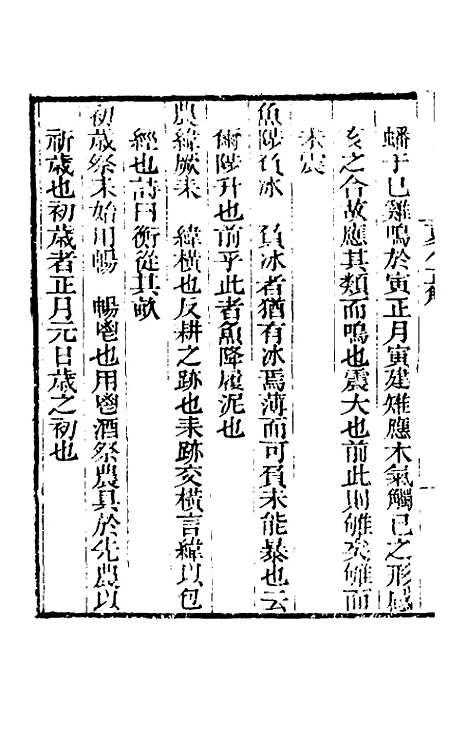 蟠于巳雞鳴於寅正月寅建雉應木氣觸巳之形感
亥之合故應其類而鳴也震大也前此則雊矣雊而
未震
魚陟負冰　負冰者猶有冰焉薄而可負未能暴也云
爾陟升也前乎此者魚降履泥也
農緯厥耒　緯橫也反耕之跡也耒跡交橫言緯以包
經也詩曰衡從其畝
初歲祭耒始用暢　暢鬯也用鬯酒祭農具於先農以
祈歲也初歲者正月元日歲之初也